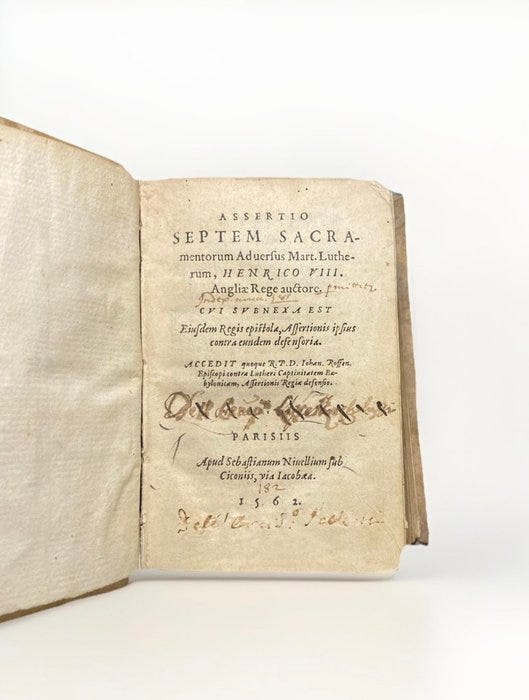 ASSERTIO
SEPTEM SACRA-
mentorum Aduersus Mart. Luthe-
rum, HENRICO VIII.
Angliæ Rege auctore.
182
CVI SVBNEXA EST
Eiusdem Regis epistola, Assertionis ipsius
contra eundem defensoria.
ACCEDIT quoque R.P.D. Iohan. Roffen.
Episcopi contra Lutheri Captiuitatem Ba-
bylonicam, Assertionis Regiæ defensio.
PARISIIS
Apud Sebastianum Niuellium sub
Ciconiis, via Iacobæa.
182
1562.